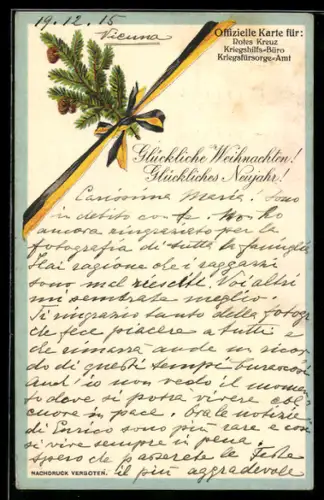 19.12.15
Vienna
Offizielle Karte für:
Rotes Kreuz
Kriegshilfs-Büro
Kriegsfürsorge-Amt
Glückliche Weihnachten!
Glückliches Neujahr!
Carissima Maria! Sono
in debito con te. Non ho
ancora ringraziato per la
fotografia di tutta la famiglia
Hai ragione che i ragazzi
sono mal riesciti. Voi altri
mi sembrate meglio.
Ti ringrazio tanto della fotogr.
che fece piacere a tutti e
che rimarrà anche un ricor
do di questi tempi burascosi
Anch' io non vedo il momen
to dove si potrà vivere col
cuore in pace. Ora le notizie
di Enrico sono più rare e così
si vive sempre in pena.
Spero che passerete le Feste
il più aggradevole
NACHDRUCK VERBOTEN.